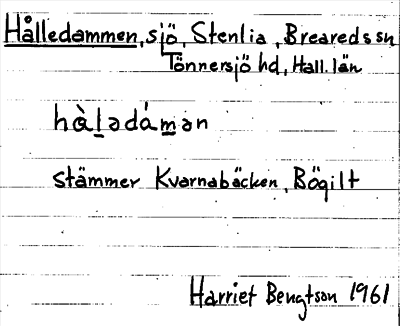 Hålledammen, sjö, Stenlia, Breareds sn
Tönnersjö hd, Hall. län
hàlədámən
stämmer Kvarnabäcken, Bögilt
Harriet Bengtson 1961